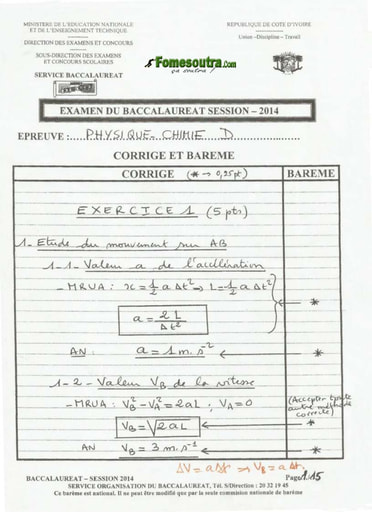 MINISTERE DE L'EDUCATION NATIONALE
ET DE L'ENSEIGNEMENT TECHNIQUE
DIRECTION DES EXAMENS ET CONCOURS
SOUS-DIRECTION DES EXAMENS
ET CONCOURS SCOLAIRES
SERVICE BACCALAUREAT
REPUBLIQUE DE COTE D'IVOIRE
Union –Discipline– Travail
Fomesoutra.com
ça soutra !
EXAMEN DU BACCALAUREAT SESSION – 2014
EPREUVE :.....PHYSIQUE-CHIMIE D.....
CORRIGE ET BAREME
CORRIGE (* → 0,25pt) BAREME
EXERCICE 1 (5 pts)
1- Etude du mouvement sur AB
1-1- Valeur a de l'accélération
- MRUA : x = 1/2 a Δt² → L = 1/2 a Δt²
a = 2L/Δt² *
AN : a = 1 m.s⁻² *
1-2- Valeur V_B de la vitesse
- MRUA : V_B² - V_A² = 2aL ; V_A = 0
(Accepter toute autre méthode correcte)
V_B = √2aL *
AN V_B = 3 m.s⁻¹ *
ΔV = aΔt ⇒ V_B = aΔt.
BACCALAUREAT – SESSION 2014 Page 1/15
SERVICE ORGANISATION DU BACCALAUREAT, Tél. S/Direction : 20 32 19 45
Ce barème est national. Il ne peut être modifié que par la seule commission nationale de barème